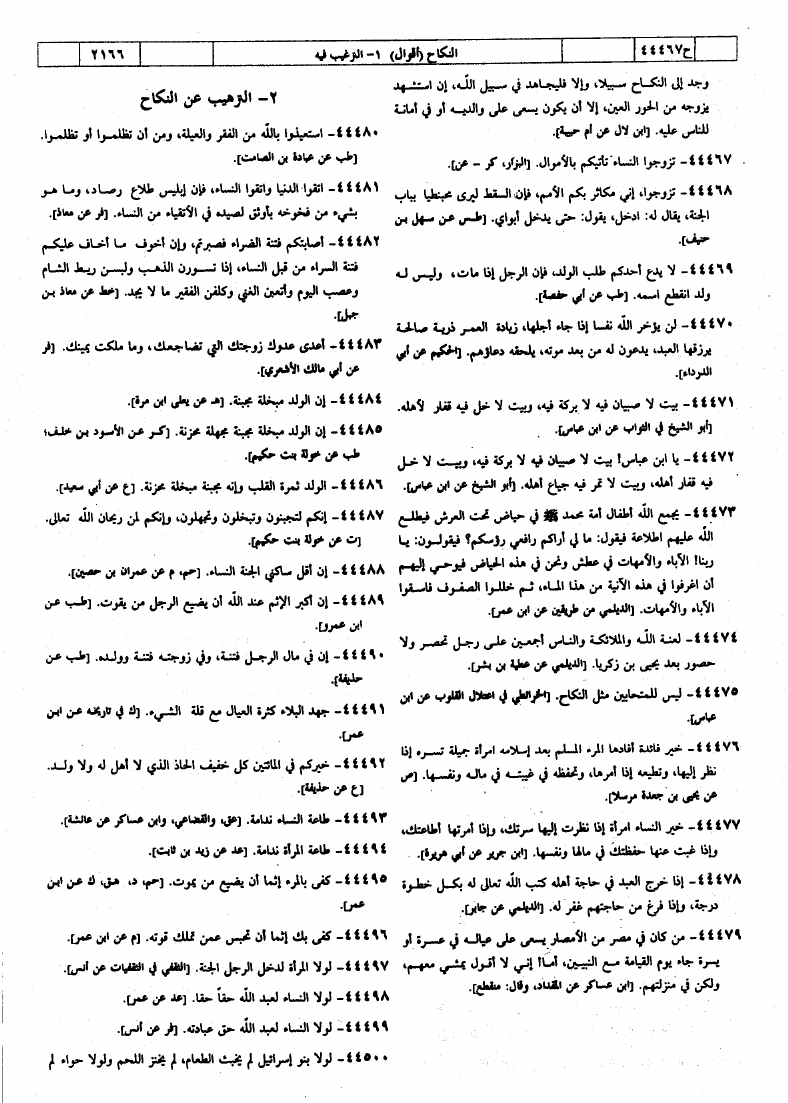 ح٤٤٤٦٧
النكاح (أقوال) ١- الترغيب فيه
٢١٦٦
وجد إلى النكاح سبيلا، وإلا فليجاهد في سبيل الله، إن استشهد
يزوجه من الحور العين، إلا أن يكون يسعى على والديه أو في أمانة
للناس عليه. [ابن لال عن أم حبيبة].
٤٤٤٦٧- تزوجوا النساء تأتيكم بالأموال. [البزار، كر - عن].
٤٤٤٦٨- تزوجوا، إني مكاثر بكم الأمم، فإن السقط ليرى محبنطيا بباب
الجنة، يقال له: ادخل، يقول: حتى يدخل أبواي. [طس عن سهل بن
حنيف].
٤٤٤٦٩- لا يدع أحدكم طلب الولد، فإن الرجل إذا مات، وليس له
ولد انقطع اسمه. [طب عن أبي حفصة].
٤٤٤٧٠- لن يؤخر الله نفسا إذا جاء أجلها، زيادة العمر ذرية صالحة
يرزقها العبد، يدعون له من بعد موته، يلحقه دعاؤهم. [الحكيم عن أبي
الدرداء].
٤٤٤٧١- بيت لا صبيان فيه لا بركة فيه، وبيت لا خل فيه قفار لأهله.
[أبو الشيخ في الثواب عن ابن عباس].
٤٤٤٧٢- يا ابن عباس! بيت لا صبيان فيه لا بركة فيه، وبيت لا خل
فيه قفار أهله، وبيت لا تمر فيه جياع أهله. [أبو الشيخ عن ابن عباس].
٤٤٤٧٣- يجمع الله أطفال أمة محمد ﷺ في حياض تحت العرش فيطلع
الله عليهم اطلاعة فيقول: ما لي أراكم رافعي رؤسكم؟ فيقولون: يا
ربنا! الآباء والأمهات في عطش ونحن في هذه الحياض فيوحي إليهم
أن اغرفوا في هذه الآنية من هذا الماء، ثم خللوا الصفوف فاسقوا
الآباء والأمهات. [الديلمي من طريقين عن ابن عمر].
٤٤٤٧٤- لعنة الله والملائكة والناس أجمعين على رجل تحصر ولا
حصور بعد يحيى بن زكريا. [الديلمي عن عطية بن بشر].
٤٤٤٧٥- ليس للمتحابين مثل النكاح. [الخرائطي في اعتلال القلوب عن ابن
عباس].
٤٤٤٧٦- خير فائدة أفادها المرء المسلم بعد إسلامه امرأة جميلة تسره إذا
نظر إليها، وتطيعه إذا أمرها، وتحفظه في غيبته في ماله ونفسها. [ص
عن يحيى بن جعدة مرسلا].
٤٤٤٧٧- خير النساء امرأة إذا نظرت إليها سرتك، وإذا أمرتها أطاعتك،
وإذا غبت عنها حفظتك في مالها ونفسها. [ابن جرير عن أبي هريرة].
٤٤٤٧٨- إذا خرج العبد في حاجة أهله كتب الله تعالى له بكل خطوة
درجة، وإذا فرغ من حاجتهم غفر له. [الديلمي عن جابر].
٤٤٤٧٩- من كان في مصر من الأمصار يسعى على عياله في عسرة أو
يسرة جاء يوم القيامة مع النبيين، أما! إني لا أقول يمشي معهم،
ولكن في منزلتهم. [ابن عساكر عن المقداد، وقال: منقطع].
٢- الترهيب عن النكاح
٤٤٤٨٠- استعيذوا بالله من الفقر والعيلة، ومن أن تظلموا أو تظلموا.
[طب عن عبادة بن الصامت].
٤٤٤٨١- اتقوا الدنيا واتقوا النساء، فإن إبليس طلاع رصاد، وما هو
بشيء من فخوخه بأوثق لصيده في الأتقياء من النساء. [فر عن معاذ].
٤٤٤٨٢- أصابتكم فتنة الضراء فصبرتم، وإن أخوف ما أخاف عليكم
فتنة السراء من قبل النساء، إذا تسورن الذهب ولبسن ريط الشام
وعصب اليوم وأتعبن الغني وكلفن الفقير ما لا يجد. [خط عن معاذ بن
جبل].
٤٤٤٨٣- أعدى عدوك زوجتك التي تضاجعك، وما ملكت يمينك. [فر
عن أبي مالك الأشعري].
٤٤٤٨٤- إن الولد مبخلة مجبنة. [هـ عن يعلى ابن مرة].
٤٤٤٨٥- إن الولد مبخلة مجبنة مجهلة محزنة. [كر عن الأسود بن خلف؛
طب عن خولة بنت حكيم].
٤٤٤٨٦- الولد ثمرة القلب وإنه مجبنة مبخلة محزنة. [ع عن أبي سعيد].
٤٤٤٨٧- إنكم لتجبنون وتبخلون وتجهلون، وإنكم لمن ريحان الله تعالى.
[ت عن خولة بنت حكيم].
٤٤٤٨٨- إن أقل ساكني الجنة النساء. [حم، م عن عمران بن حصين].
٤٤٤٨٩- إن أكبر الإثم عند الله أن يضيع الرجل من يقوت. [طب عن
ابن عمرو].
٤٤٤٩٠- إن في مال الرجل فتنة، وفي زوجته فتنة وولده. [طب عن
حذيفة].
٤٤٤٩١- جهد البلاء كثرة العيال مع قلة الشيء. [ك في تاريخه عن ابن
عمر].
٤٤٤٩٢- خيركم في المائتين كل خفيف الحاذ الذي لا أهل له ولا ولد.
[ع عن حذيفة].
٤٤٤٩٣- طاعة النساء ندامة. [عق، والقضاعي، وابن عساكر عن عائشة].
٤٤٤٩٤- طاعة المرأة ندامة. [عد عن زيد بن ثابت].
٤٤٤٩٥- كفى بالمرء إثما أن يضيع من يموت. [حم، د، هق، ك عن ابن
عمر].
٤٤٤٩٦- كفى بك إثما أن تحبس عمن تملك قوته. [م عن ابن عمر].
٤٤٤٩٧- لولا المرأة لدخل الرجل الجنة. [الثقفي في الثقفيات عن أنس].
٤٤٤٩٨- لولا النساء لعبد الله حقاً حقا. [عد عن عمر].
٤٤٤٩٩- لولا النساء لعبد الله حق عبادته. [فر عن أنس].
٤٤٥٠٠- لولا بنو إسرائيل لم يخبث الطعام، لم يخنز اللحم ولولا حواء لم